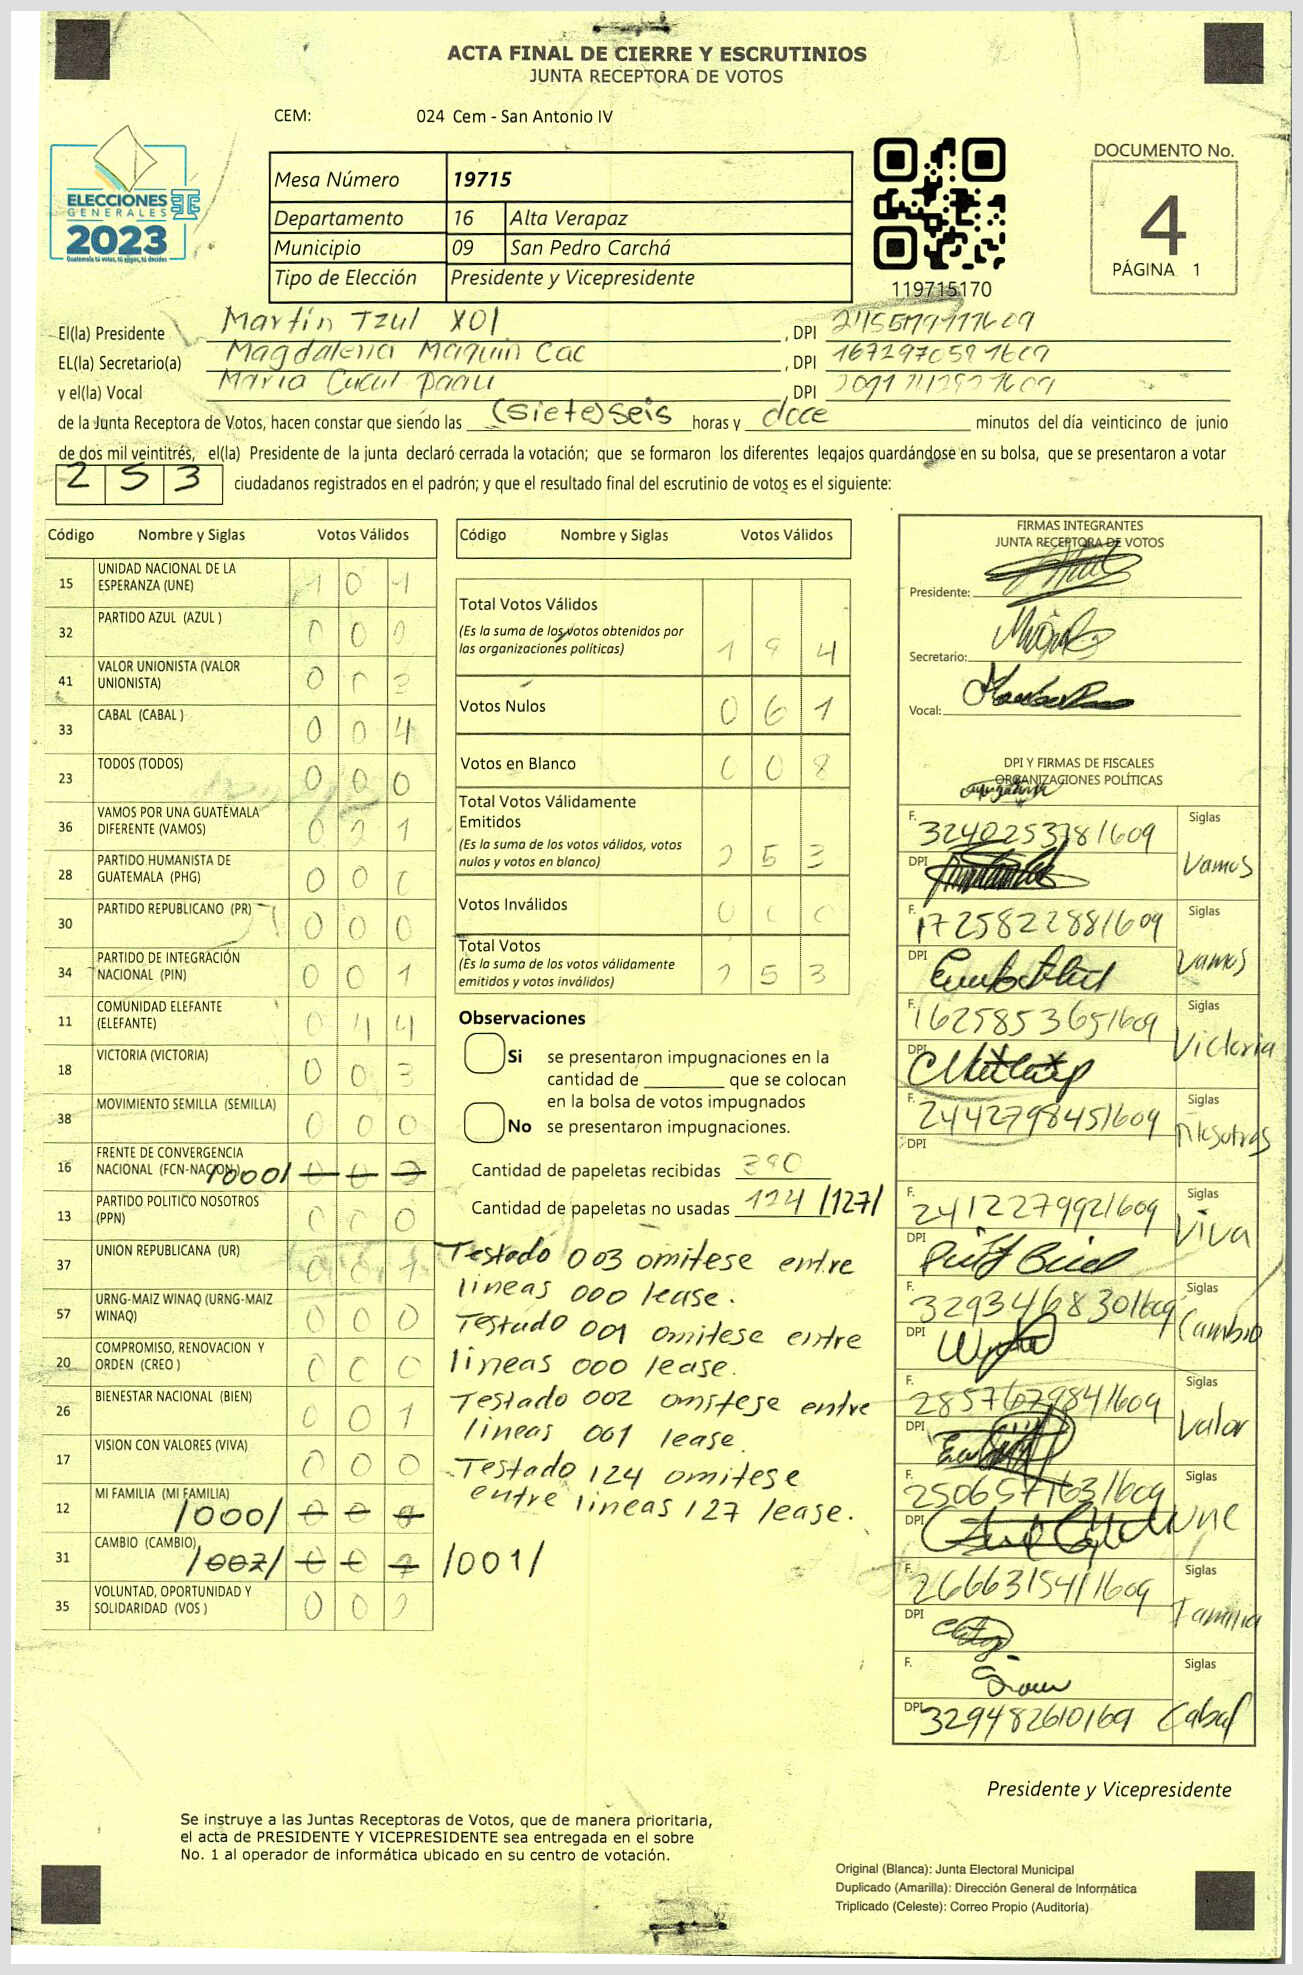 ACTA FINAL DE CIERRE Y ESCRUTINIOS
JUNTA RECEPTORA DE VOTOS
CEM: 024 Cem - San Antonio IV
ELECCIONES
GENERALES
2023
Guatemala tú votas, tú eliges, tú decides
Mesa Número 19715
Departamento 16 Alta Verapaz
Municipio 09 San Pedro Carchá
Tipo de Elección Presidente y Vicepresidente
119715170
DOCUMENTO No.
4
PÁGINA 1
El(la) Presidente Martín Tzul XOl , DPI
EL(la) Secretario(a) Magdalena Maquin Cac , DPI
y el(la) Vocal Maria Cucul , DPI
de la Junta Receptora de Votos, hacen constar que siendo las (siete) seis horas y doce minutos del día veinticinco de junio
de dos mil veintitrés, el(la) Presidente de la junta declaró cerrada la votación; que se formaron los diferentes legajos guardándose en su bolsa, que se presentaron a votar
253 ciudadanos registrados en el padrón; y que el resultado final del escrutinio de votos es el siguiente:
Código Nombre y Siglas Votos Válidos
15 UNIDAD NACIONAL DE LA
ESPERANZA (UNE)
32 PARTIDO AZUL (AZUL )
41 VALOR UNIONISTA (VALOR
UNIONISTA)
33 CABAL (CABAL ) 0 0 4
23 TODOS (TODOS) 0 0 0
36 VAMOS POR UNA GUATEMALA
DIFERENTE (VAMOS) 0 2 1
28 PARTIDO HUMANISTA DE
GUATEMALA (PHG) 0 0 0
30 PARTIDO REPUBLICANO (PR) 0 0 0
34 PARTIDO DE INTEGRACIÓN
NACIONAL (PIN) 0 0 1
11 COMUNIDAD ELEFANTE
(ELEFANTE) 0 4 4
18 VICTORIA (VICTORIA) 0 0 3
38 MOVIMIENTO SEMILLA (SEMILLA) 0 0 0
16 FRENTE DE CONVERGENCIA
NACIONAL (FCN-NACION) /000/
13 PARTIDO POLITICO NOSOTROS
(PPN) 0 0 0
37 UNION REPUBLICANA (UR) 0 0 1
57 URNG-MAIZ WINAQ (URNG-MAIZ
WINAQ) 0 0 0
20 COMPROMISO, RENOVACION Y
ORDEN (CREO ) 0 0 0
26 BIENESTAR NACIONAL (BIEN) 0 0 1
17 VISION CON VALORES (VIVA) 0 0 0
12 MI FAMILIA (MI FAMILIA) /000/
31 CAMBIO (CAMBIO) /001/
35 VOLUNTAD, OPORTUNIDAD Y
SOLIDARIDAD (VOS )
Código Nombre y Siglas Votos Válidos
Total Votos Válidos
(Es la suma de los votos obtenidos por
las organizaciones políticas) 1 8 4
Votos Nulos 0 6 1
Votos en Blanco 0 0 8
Total Votos Válidamente
Emitidos
(Es la suma de los votos válidos, votos
nulos y votos en blanco) 2 5 3
Votos Inválidos 0 0 0
Total Votos
(Es la suma de los votos válidamente
emitidos y votos inválidos) 2 5 3
Observaciones
Si se presentaron impugnaciones en la
cantidad de ________ que se colocan
en la bolsa de votos impugnados
No se presentaron impugnaciones.
Cantidad de papeletas recibidas
Cantidad de papeletas no usadas 124 /127/
Testado 003 omitese entre
lineas 000 lease.
Testado 001 omitese entre
lineas 000 lease.
Testado 002 omitese entre
lineas 001 lease
Testado 124 omitese
entre lineas 127 lease.
FIRMAS INTEGRANTES
JUNTA RECEPTORA DE VOTOS
Presidente:
Secretario:
Vocal:
DPI Y FIRMAS DE FISCALES
ORGANIZACIONES POLÍTICAS
F. 3240253781609 Siglas
DPI Vamos
F. 1725822881609 Siglas
DPI Vamos
F. 1625853651609 Siglas
DPI Victoria
F. 2442798451609 Siglas
DPI Nosotros
F. 2412279921609 Siglas
DPI Viva
F. 3293468301609 Siglas
DPI Cambio
F. 2857679841609 Siglas
DPI Valor
F. 2506571631609 Siglas
DPI Une
F. 2666315411609 Siglas
DPI Familia
F. Siglas
DPI 329482610169 Cabal
Presidente y Vicepresidente
Se instruye a las Juntas Receptoras de Votos, que de manera prioritaria,
el acta de PRESIDENTE Y VICEPRESIDENTE sea entregada en el sobre
No. 1 al operador de informática ubicado en su centro de votación.
Original (Blanca): Junta Electoral Municipal
Duplicado (Amarilla): Dirección General de Informática
Triplicado (Celeste): Correo Propio (Auditoría)